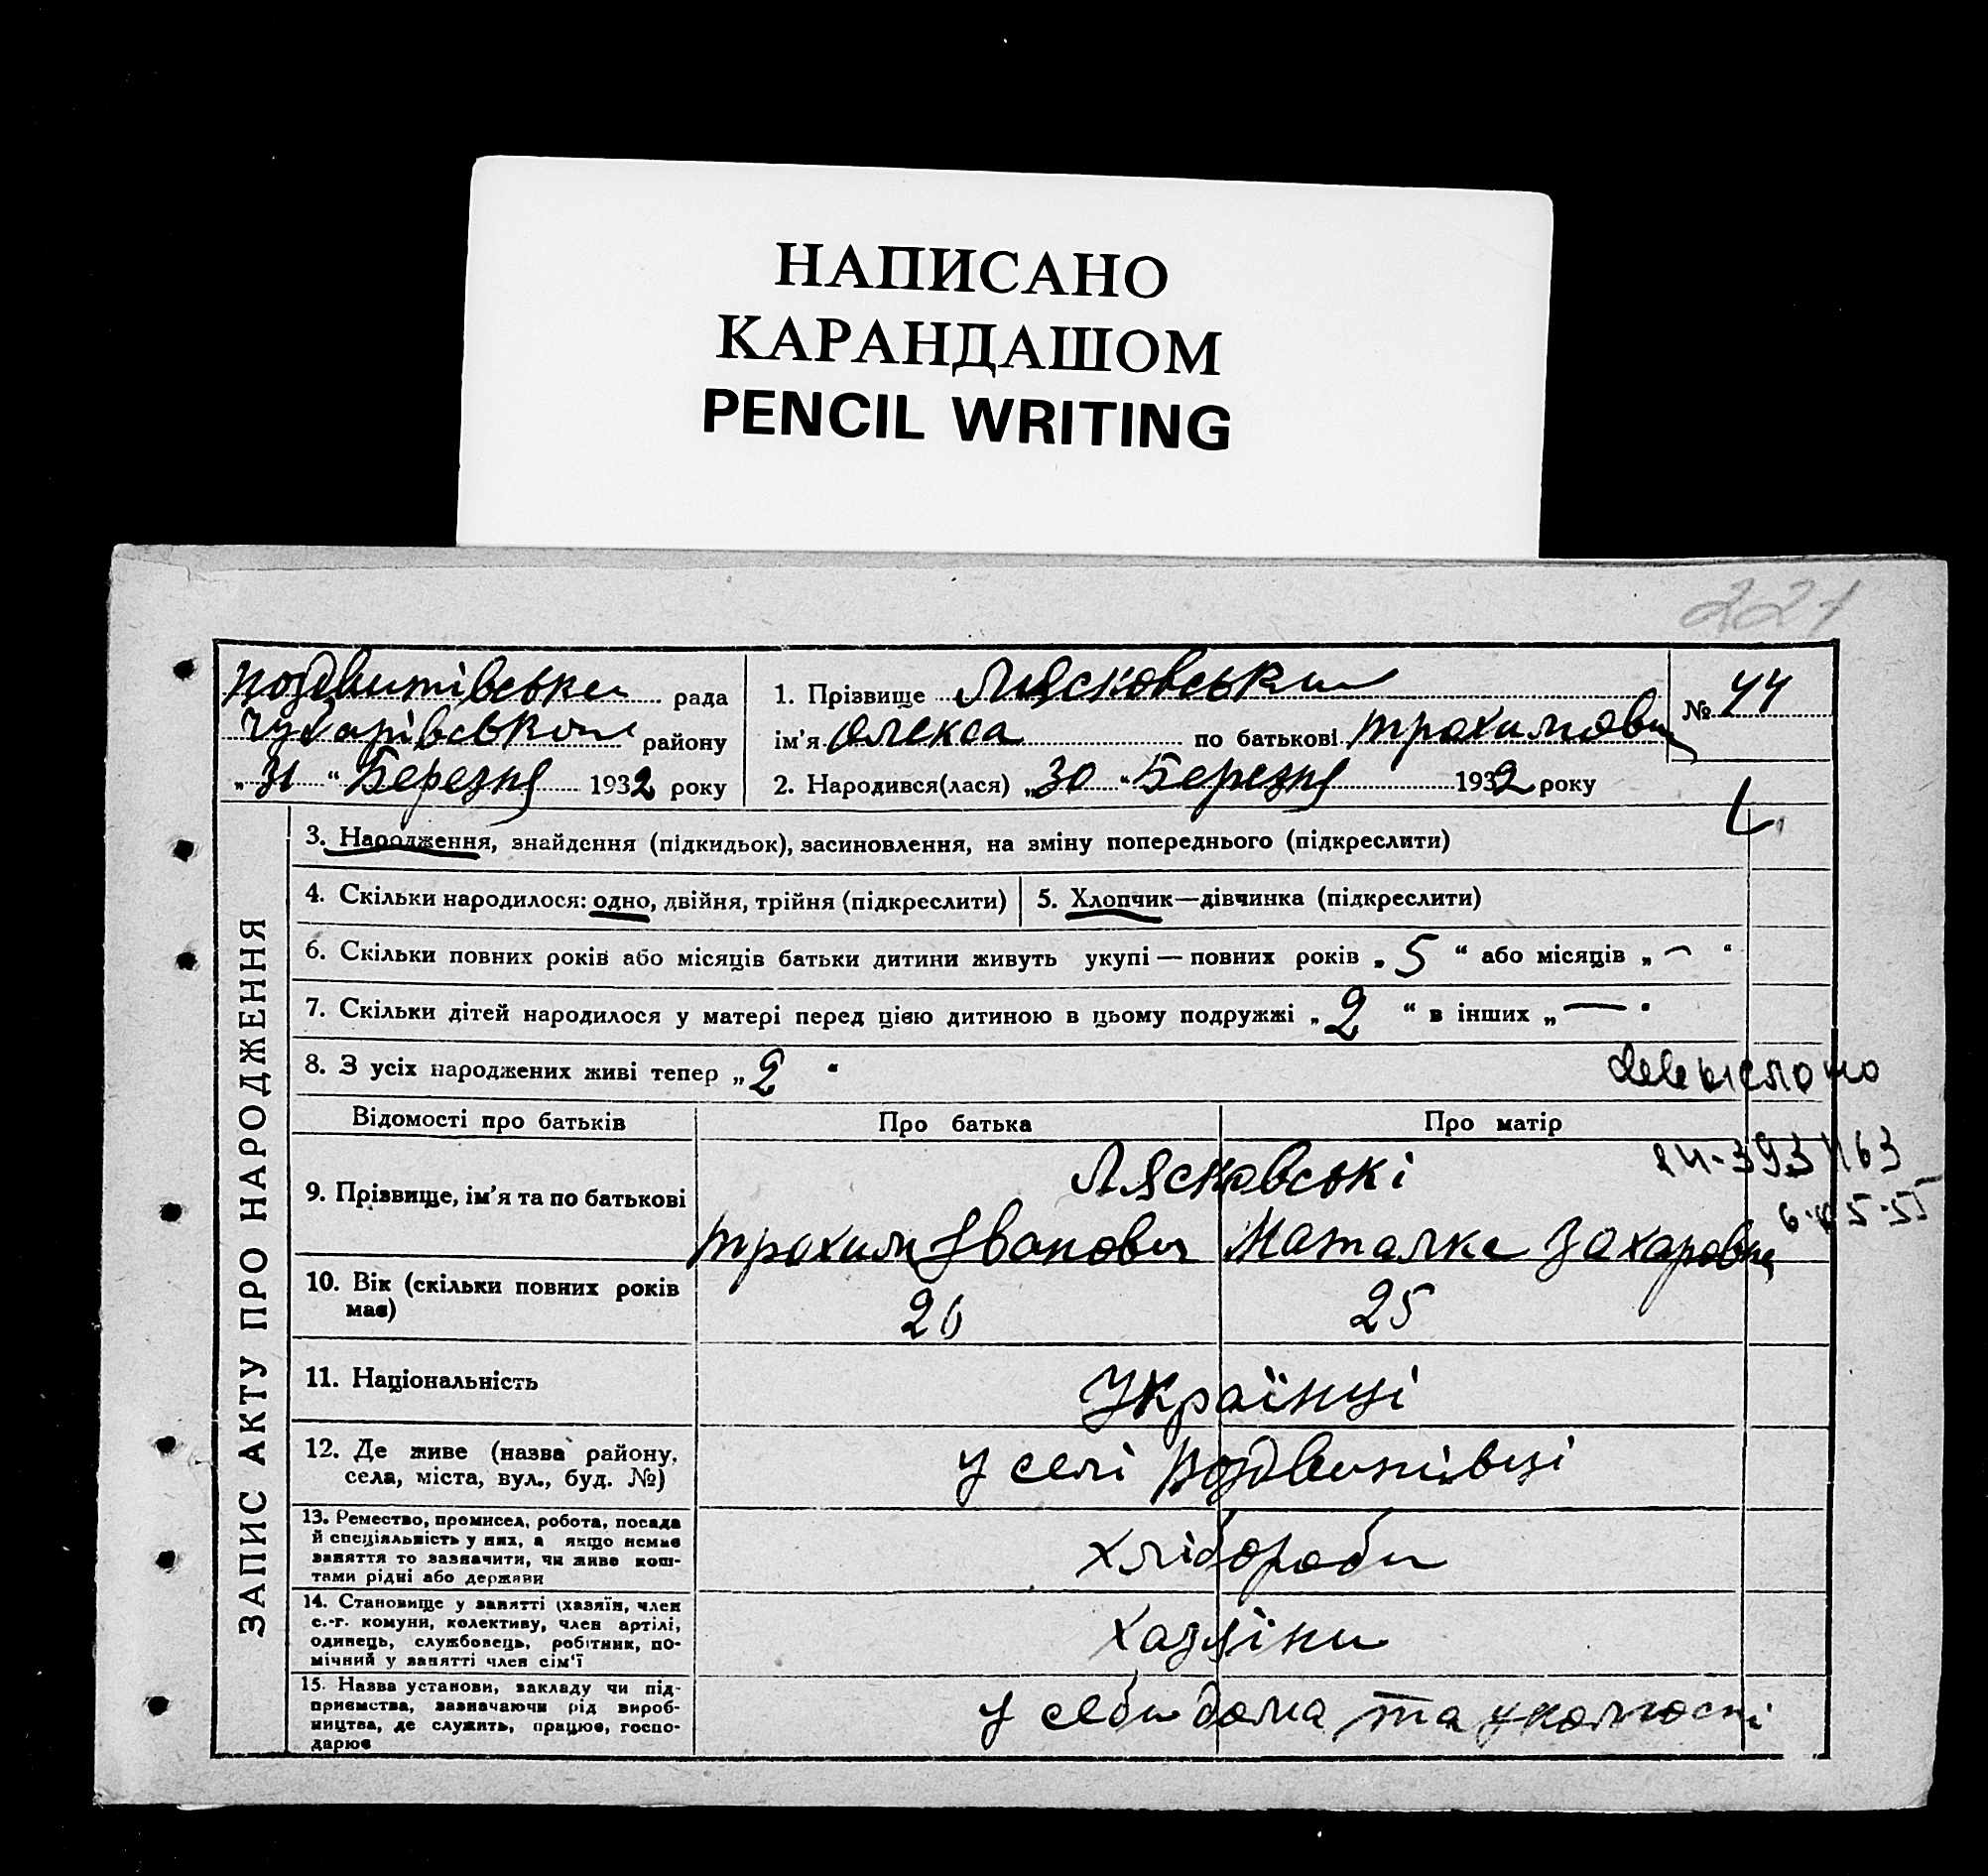 НАПИСАНО
КАРАНДАШОМ
PENCIL WRITING
221
Воздвижівська рада
району
„31“ Березня 1932 року
1. Прізвище Лясковський
ім'я Олекса по батькові Трохимович
2. Народився(лася) „30“ Березня 1932 року
№ 44
ЗАПИС АКТУ ПРО НАРОДЖЕННЯ
3. Народження, знайдення (підкидьок), засиновлення, на зміну попереднього (підкреслити)
4. Скільки народилося: одно, двійня, трійня (підкреслити)
5. Хлопчик—дівчинка (підкреслити)
6. Скільки повних років або місяців батьки дитини живуть укупі — повних років „5“ або місяців „—“
7. Скільки дітей народилося у матері перед цією дитиною в цьому подружжі „2“ в інших „—“
8. З усіх народжених живі тепер „2“
Відомості про батьків
Про батька
Про матір
9. Прізвище, ім'я та по батькові
Лясковські
Трохим Іванович
Наталка Захаровна
6-05-55
10. Вік (скільки повних років
має)
26
25
11. Національність
Українці
12. Де живе (назва району,
села, міста, вул., буд. №)
у селі Воздвижівці
13. Ремество, промисел, робота, посада
й спеціяльність у них, а якщо немає
заняття то зазначити, чи живе кош-
тами рідні або держави
хлібороби
14. Становище у занятті (хазяїн, член
с.-г. комуни, колективу, член артілі,
одинець, службовець, робітник, по-
мічний у занятті член сім'ї
хазяїни
15. Назва установи, закладу чи під-
приємства, зазначаючи рід вироб-
ництва, де служить, працює, госпо-
дарює
у себи дома та у колгоспі